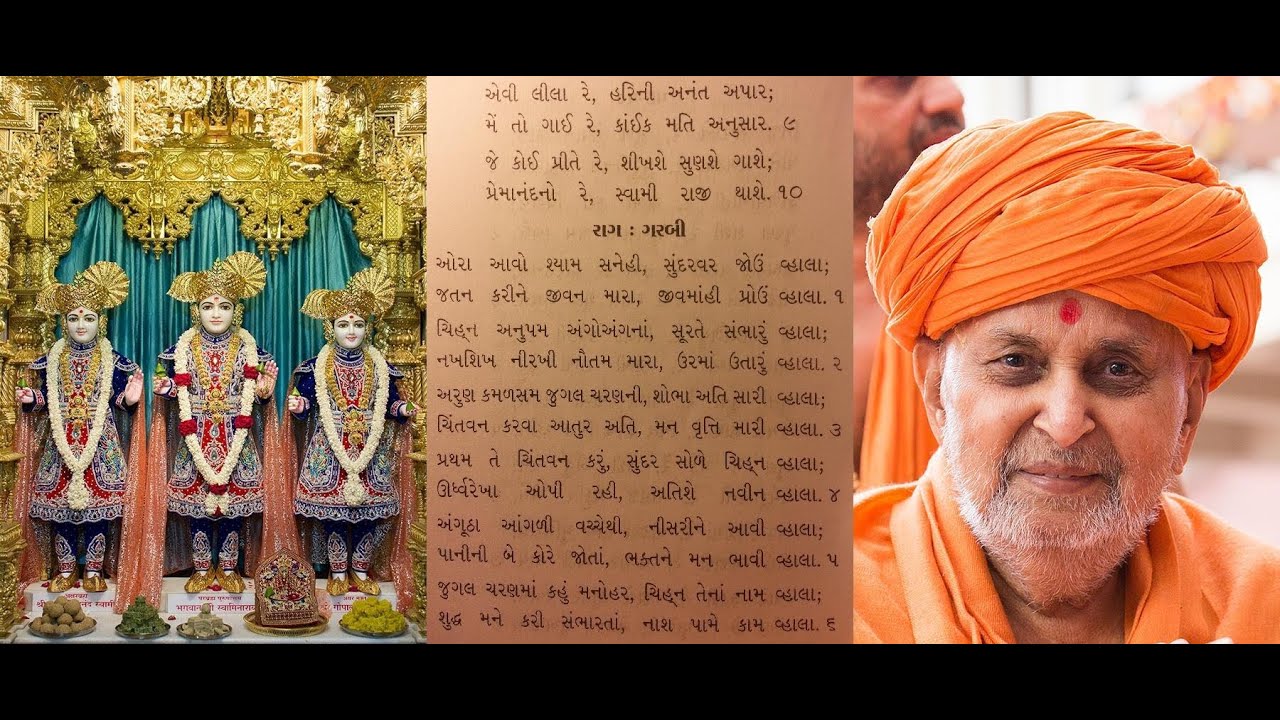 એવી લીલા રે, હરિની અનંત અપાર;
મેં તો ગાઈ રે, કાંઈક મતિ અનુસાર. ૯
જે કોઈ પ્રીતે રે, શીખશે સુણશે ગાશે;
પ્રેમાનંદનો રે, સ્વામી રાજી થાશે. ૧૦
રાગ : ગરબી
ઓરા આવો શ્યામ સનેહી, સુંદરવર જોઉં વ્હાલા;
જતન કરીને જીવન મારા, જીવમાંહી પ્રોઉં વ્હાલા. ૧
ચિહ્ન અનુપમ અંગોઅંગનાં, સૂરતે સંભારું વ્હાલા;
નખશિખ નીરખી નૌતમ મારા, ઉરમાં ઉતારું વ્હાલા. ૨
અરુણ કમળસમ જુગલ ચરણની, શોભા અતિ સારી વ્હાલા;
ચિંતવન કરવા આતુર અતિ, મન વૃત્તિ મારી વ્હાલા. ૩
પ્રથમ તે ચિંતવન કરું, સુંદર સોળે ચિહ્ન વ્હાલા;
ઊર્ધ્વરેખા ઓપી રહી, અતિશે નવીન વ્હાલા. ૪
અંગૂઠા આંગળી વચ્ચેથી, નીસરીને આવી વ્હાલા;
પાનીની બે કોરે જોતાં, ભક્તને મન ભાવી વ્હાલા. ૫
જુગલ ચરણમાં કહું મનોહર, ચિહ્ન તેનાં નામ વ્હાલા;
શુદ્ધ મને કરી સંભારતાં, નાશ પામે કામ વ્હાલા. ૬